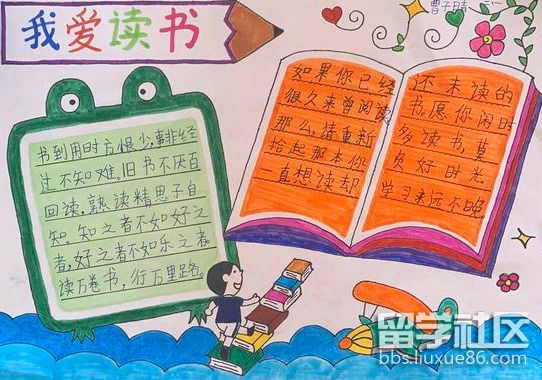 我爱读书
曹子晴
书到用时方恨少,事非经
过不知难。旧书不厌百
回读,熟读精思子自
知。知之者不如好之
者,好之者不如乐之者。
读万卷书,行万里路。
如果你已经
很久未曾阅读,
那么,请重新
拾起那本你
一直想读却
还未读的
书,愿你闲时
多读书,莫
负好时光
学习永远不晚
留学社区
bbs.liuxue86.com